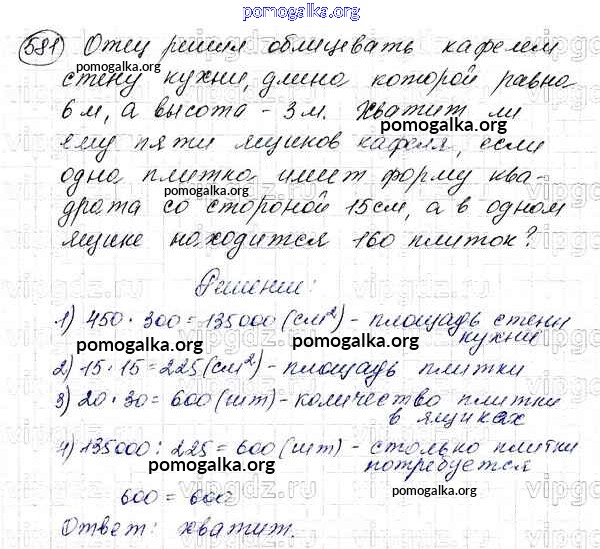 pomogalka.org
581 Отец решил облицевать кафелем
стену кухни, длина которой равна
pomogalka.org
6 м, а высота - 3 м. Хватит ли
pomogalka.org
ему пяти ящиков кафеля, если
одна плитка имеет форму ква-
pomogalka.org
драта со стороной 15см, а в одном
ящике находится 160 плиток?
pomogalka.org
Решение:
1) 450 · 300 = 135000 (см²) - площадь стены
кухни
pomogalka.org
pomogalka.org
2) 15 · 15 = 225 (см²) - площадь плитки
3) 20 · 30 = 600 (шт) - количество плитки
в ящиках
pomogalka.org
4) 135000 : 225 = 600 (шт) - столько плитки
потребуется
pomogalka.org
pomogalka.org
600 = 600
Ответ: хватит.
pomogalka.org